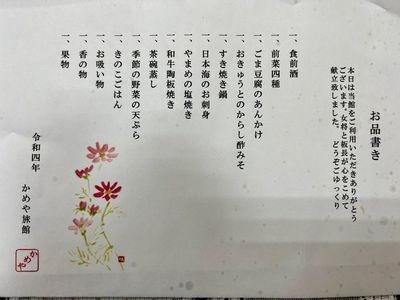 お品書き
本日は当館をご利用いただきありがとう
ございます。女将と板長が心をこめて
献立致しました。どうぞごゆっくり
一、食前酒
一、前菜四種
一、ごま豆腐のあんかけ
一、おきゅうとのからし酢みそ
一、すき焼き鍋
一、日本海のお刺身
一、やまめの塩焼き
一、和牛陶板焼き
一、茶碗蒸し
一、季節の野菜の天ぷら
一、きのこごはん
一、お吸い物
一、香の物
一、果物
令和四年
かめや旅館